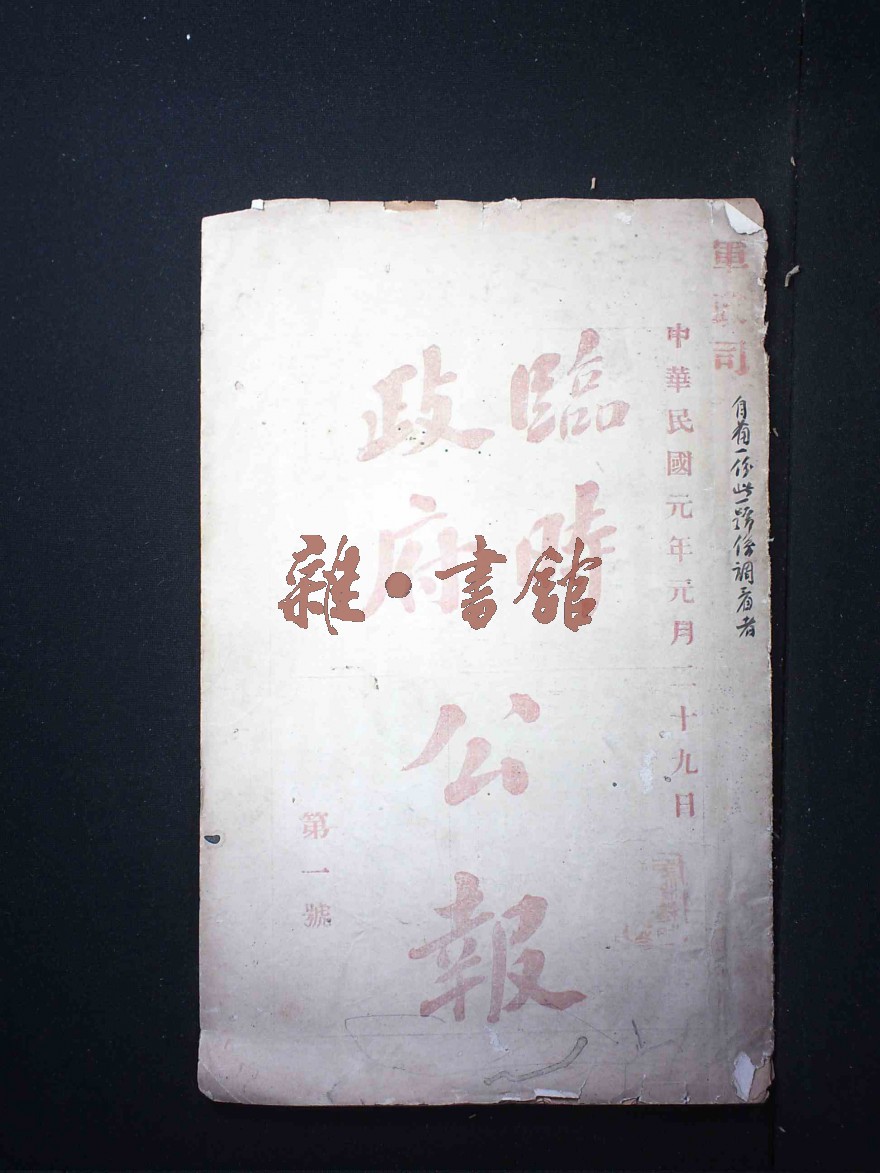 軍
司
中華民國元年元月二十九日
臨時
政府
公報
第一號
自備一份此一號係調看者
雜·書館